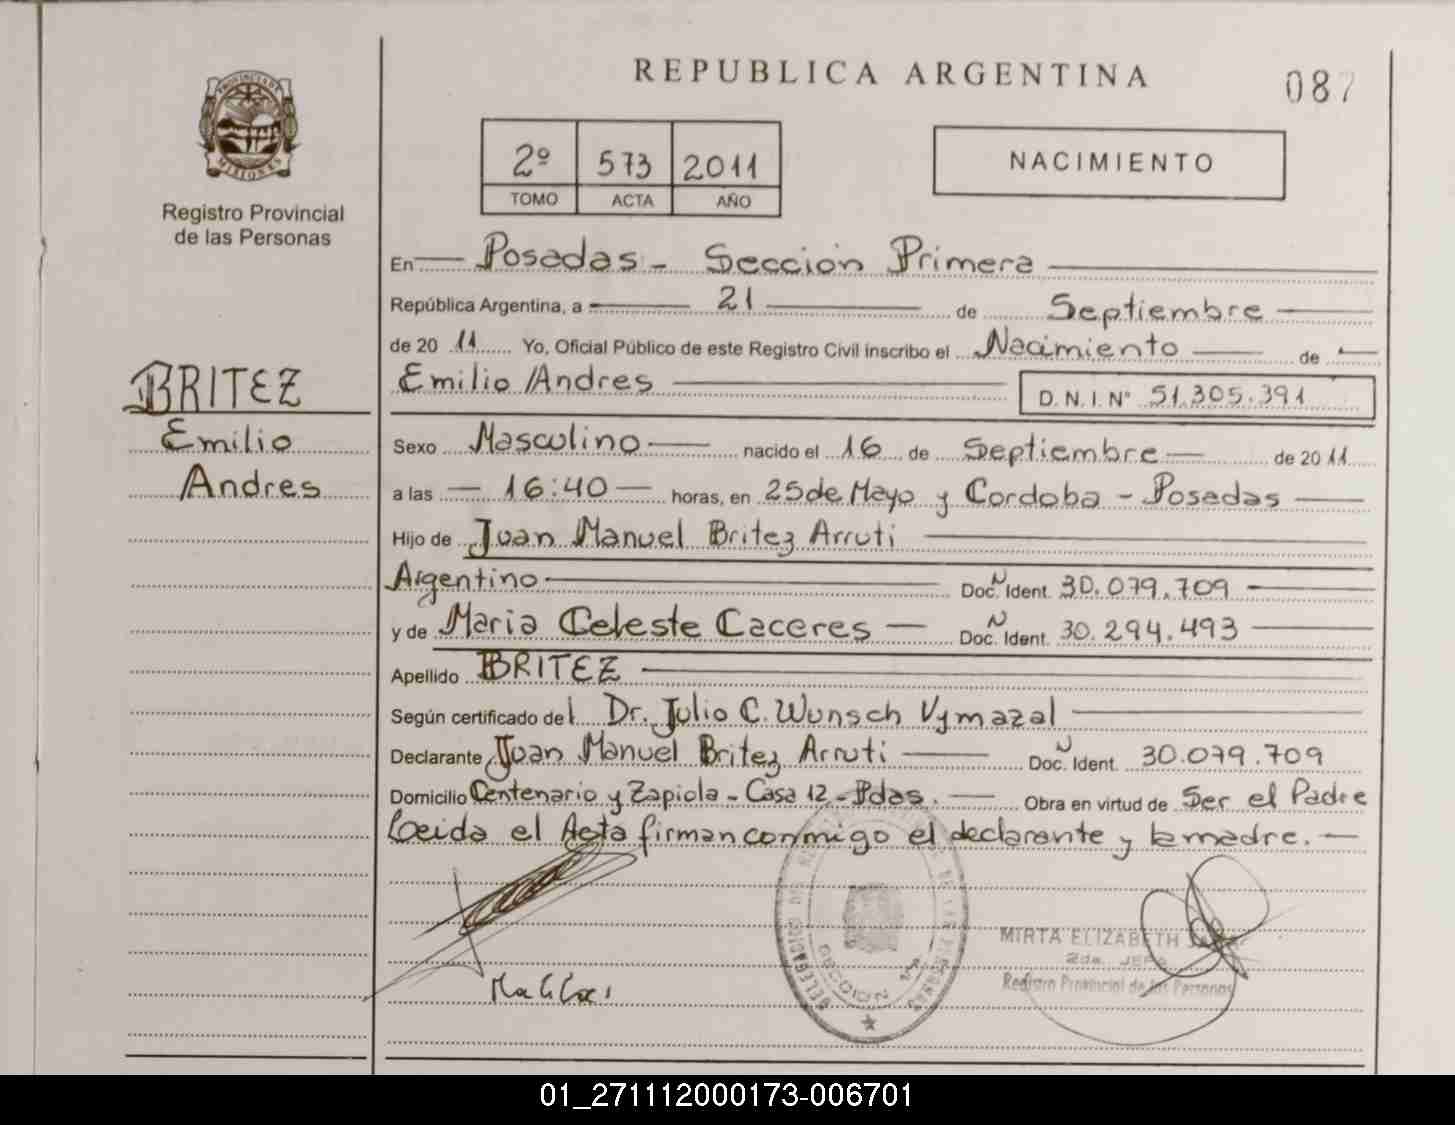 REPUBLICA ARGENTINA
087
PROVINCIA DE
MISIONES
Registro Provincial
de las Personas
2º 573 2011
TOMO ACTA AÑO
NACIMIENTO
En Posadas - Sección Primera
República Argentina, a 21 de Septiembre
de 20 11 Yo, Oficial Público de este Registro Civil inscribo el Nacimiento de
Emilio Andres D.N.I. Nº 51.305.391
BRITEZ
Emilio
Andres
Sexo Masculino nacido el 16 de Septiembre de 20 11
a las 16:40 horas, en 25 de Mayo y Cordoba - Posadas
Hijo de Juan Manuel Britez Arruti
Argentino Doc. N Ident. 30.079.709
y de Maria Celeste Caceres Doc. N Ident. 30.294.493
Apellido BRITEZ
Según certificado del Dr. Julio C. Wunsch Vymazal
Declarante Juan Manuel Britez Arruti Doc. N Ident. 30.079.709
Domicilio Centenario y Zapiola - Casa 12 - Pdas. Obra en virtud de Ser el Padre
Leida el Acta firman conmigo el declarante y la madre.
MIRTA ELIZABETH
2da. JEFA
Registro Provincial de las Personas
SECCION 1ª
01_271112000173-006701